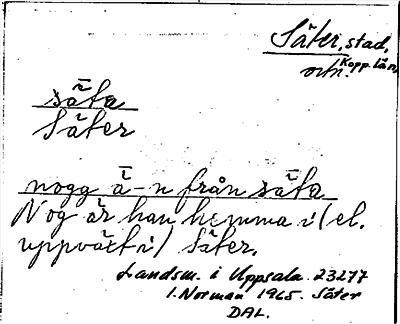 Säter, stad,
Kopp. län
ortn.
säta
Säter
nogg ä-n från säta
Nog är han hemma i (el.
uppväxt i) Säter.
Landsm. i Uppsala 23277
I. Norman 1965. Säter
DAL.